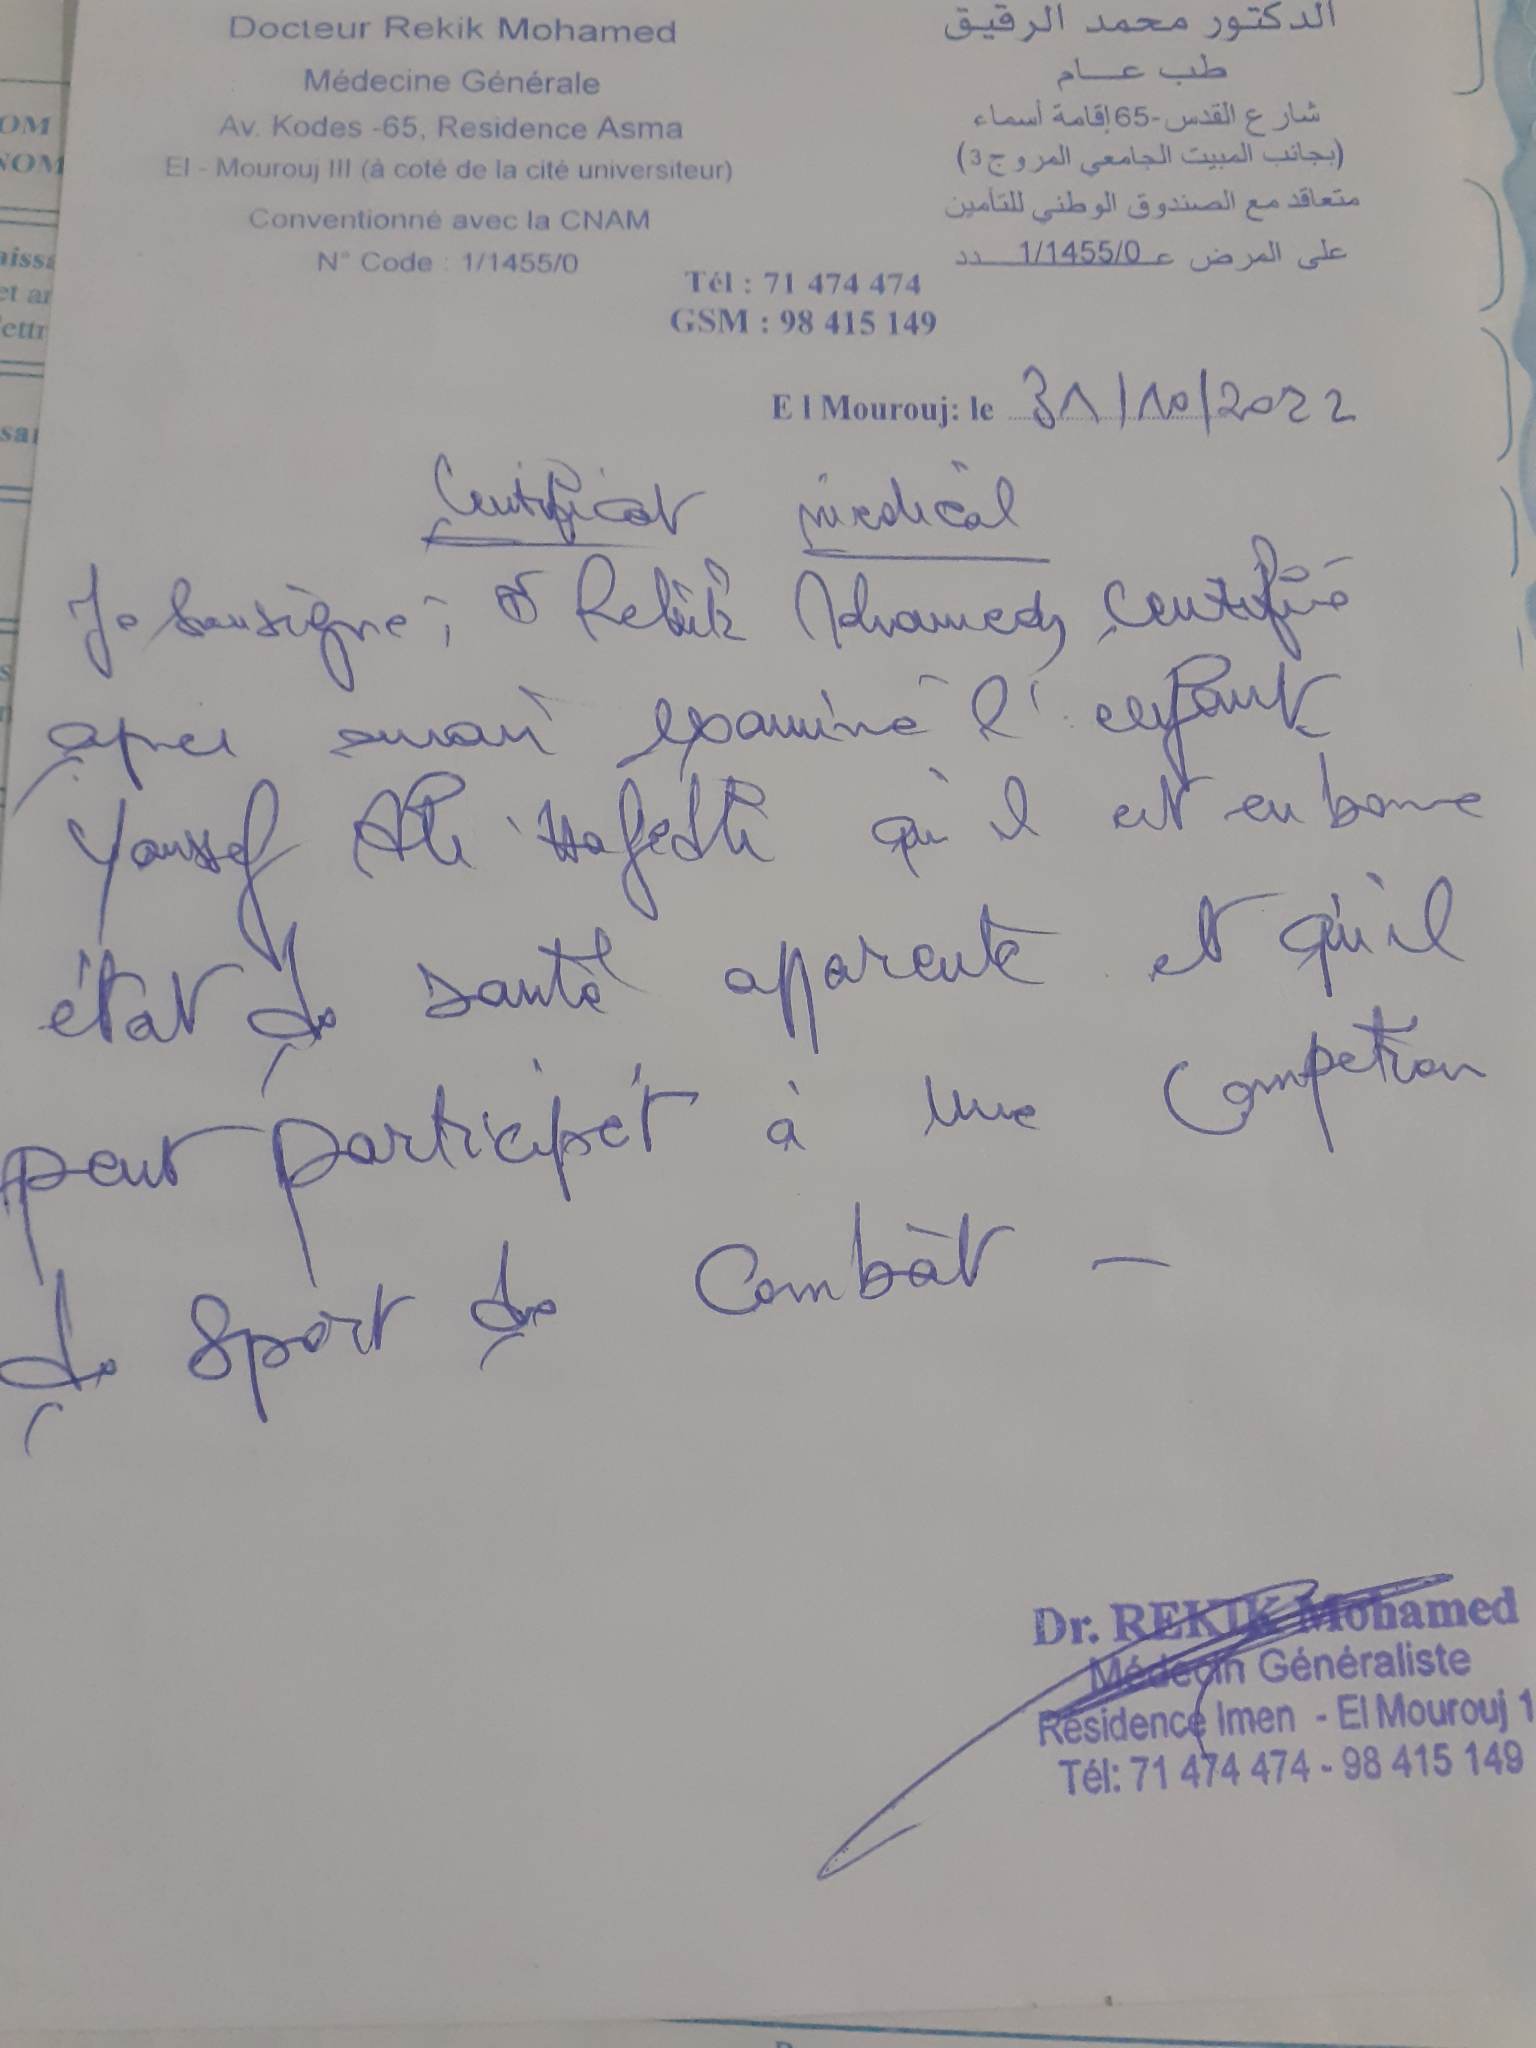 Docteur Rekik Mohamed
Médecine Générale
Av. Kodes -65, Residence Asma
El - Mourouj III (à coté de la cité universiteur)
Conventionné avec la CNAM
N° Code : 1/1455/0
الدكتور محمد الرقيق
طب عـــام
شارع القدس-65إقامة أسماء
(بجانب المبيت الجامعي المروج3)
متعاقد مع الصندوق الوطني للتأمين
على المرض عـ 1/1455/0 ـدد
Tél : 71 474 474
GSM : 98 415 149
E l Mourouj: le 31/10/2022
Certificat médical
Je soussigné, Dr Rekik Mohamed, certifie
après avoir examiné l'enfant
Youssef Ali qu'il est en bonne
état de santé apparente et qu'il
peut participer à une compétition
de sport de combat -
Dr. REKIK Mohamed
Médecin Généraliste
Résidence Imen - El Mourouj 1
Tél: 71 474 474 - 98 415 149
OM
NOM
aissa
et ar
ettr